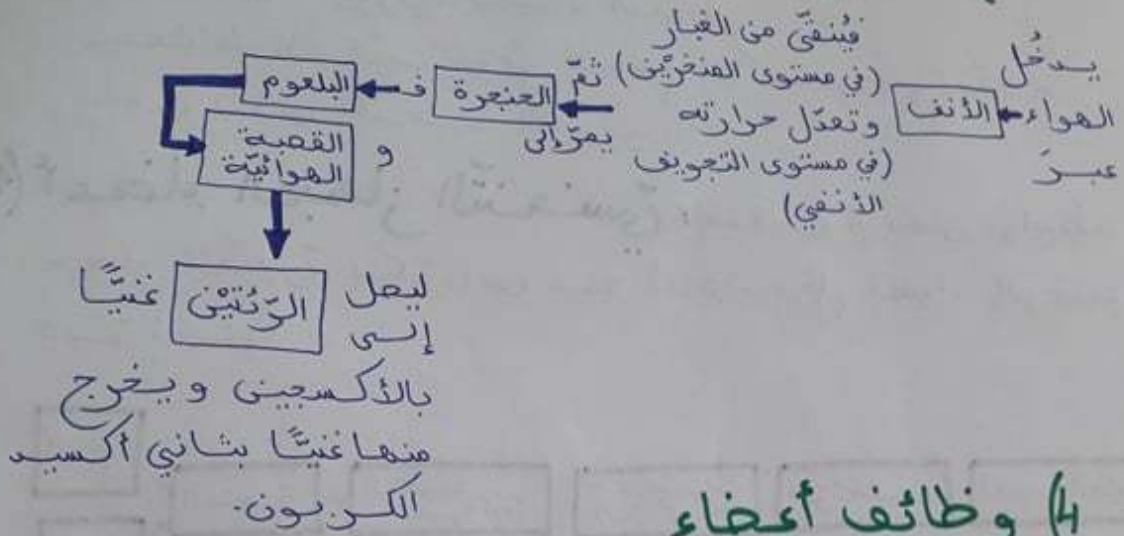 يدخُل
الهواء
عبرَ
الأنف
فيُنقّى من الغبار
(في مستوى المنخريْن)
وتعدّل حرارته
(في مستوى التجويف
الأنفي)
ثمّ
يمرّ إلى
الحنجرة
ف
البلعوم
و
القصبة
الهوائيّة
ليصل
إلى
الرّئتيْن
غنيًّا
بالأكسجين ويخرج
منها غنيًّا بثاني أكسيد
الكربون.
4) وظائف أعضاء